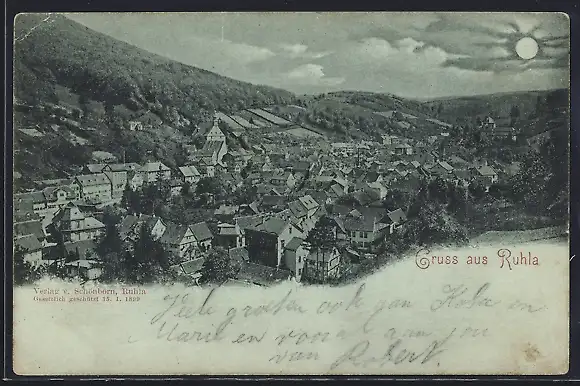 Gruss aus Ruhla
Verlag v. Schönborn, Ruhla
Gesetzlich geschützt 18. 1. 1899
Veele groeten ook aan en
Marie en vooral aan jou
van Robert.